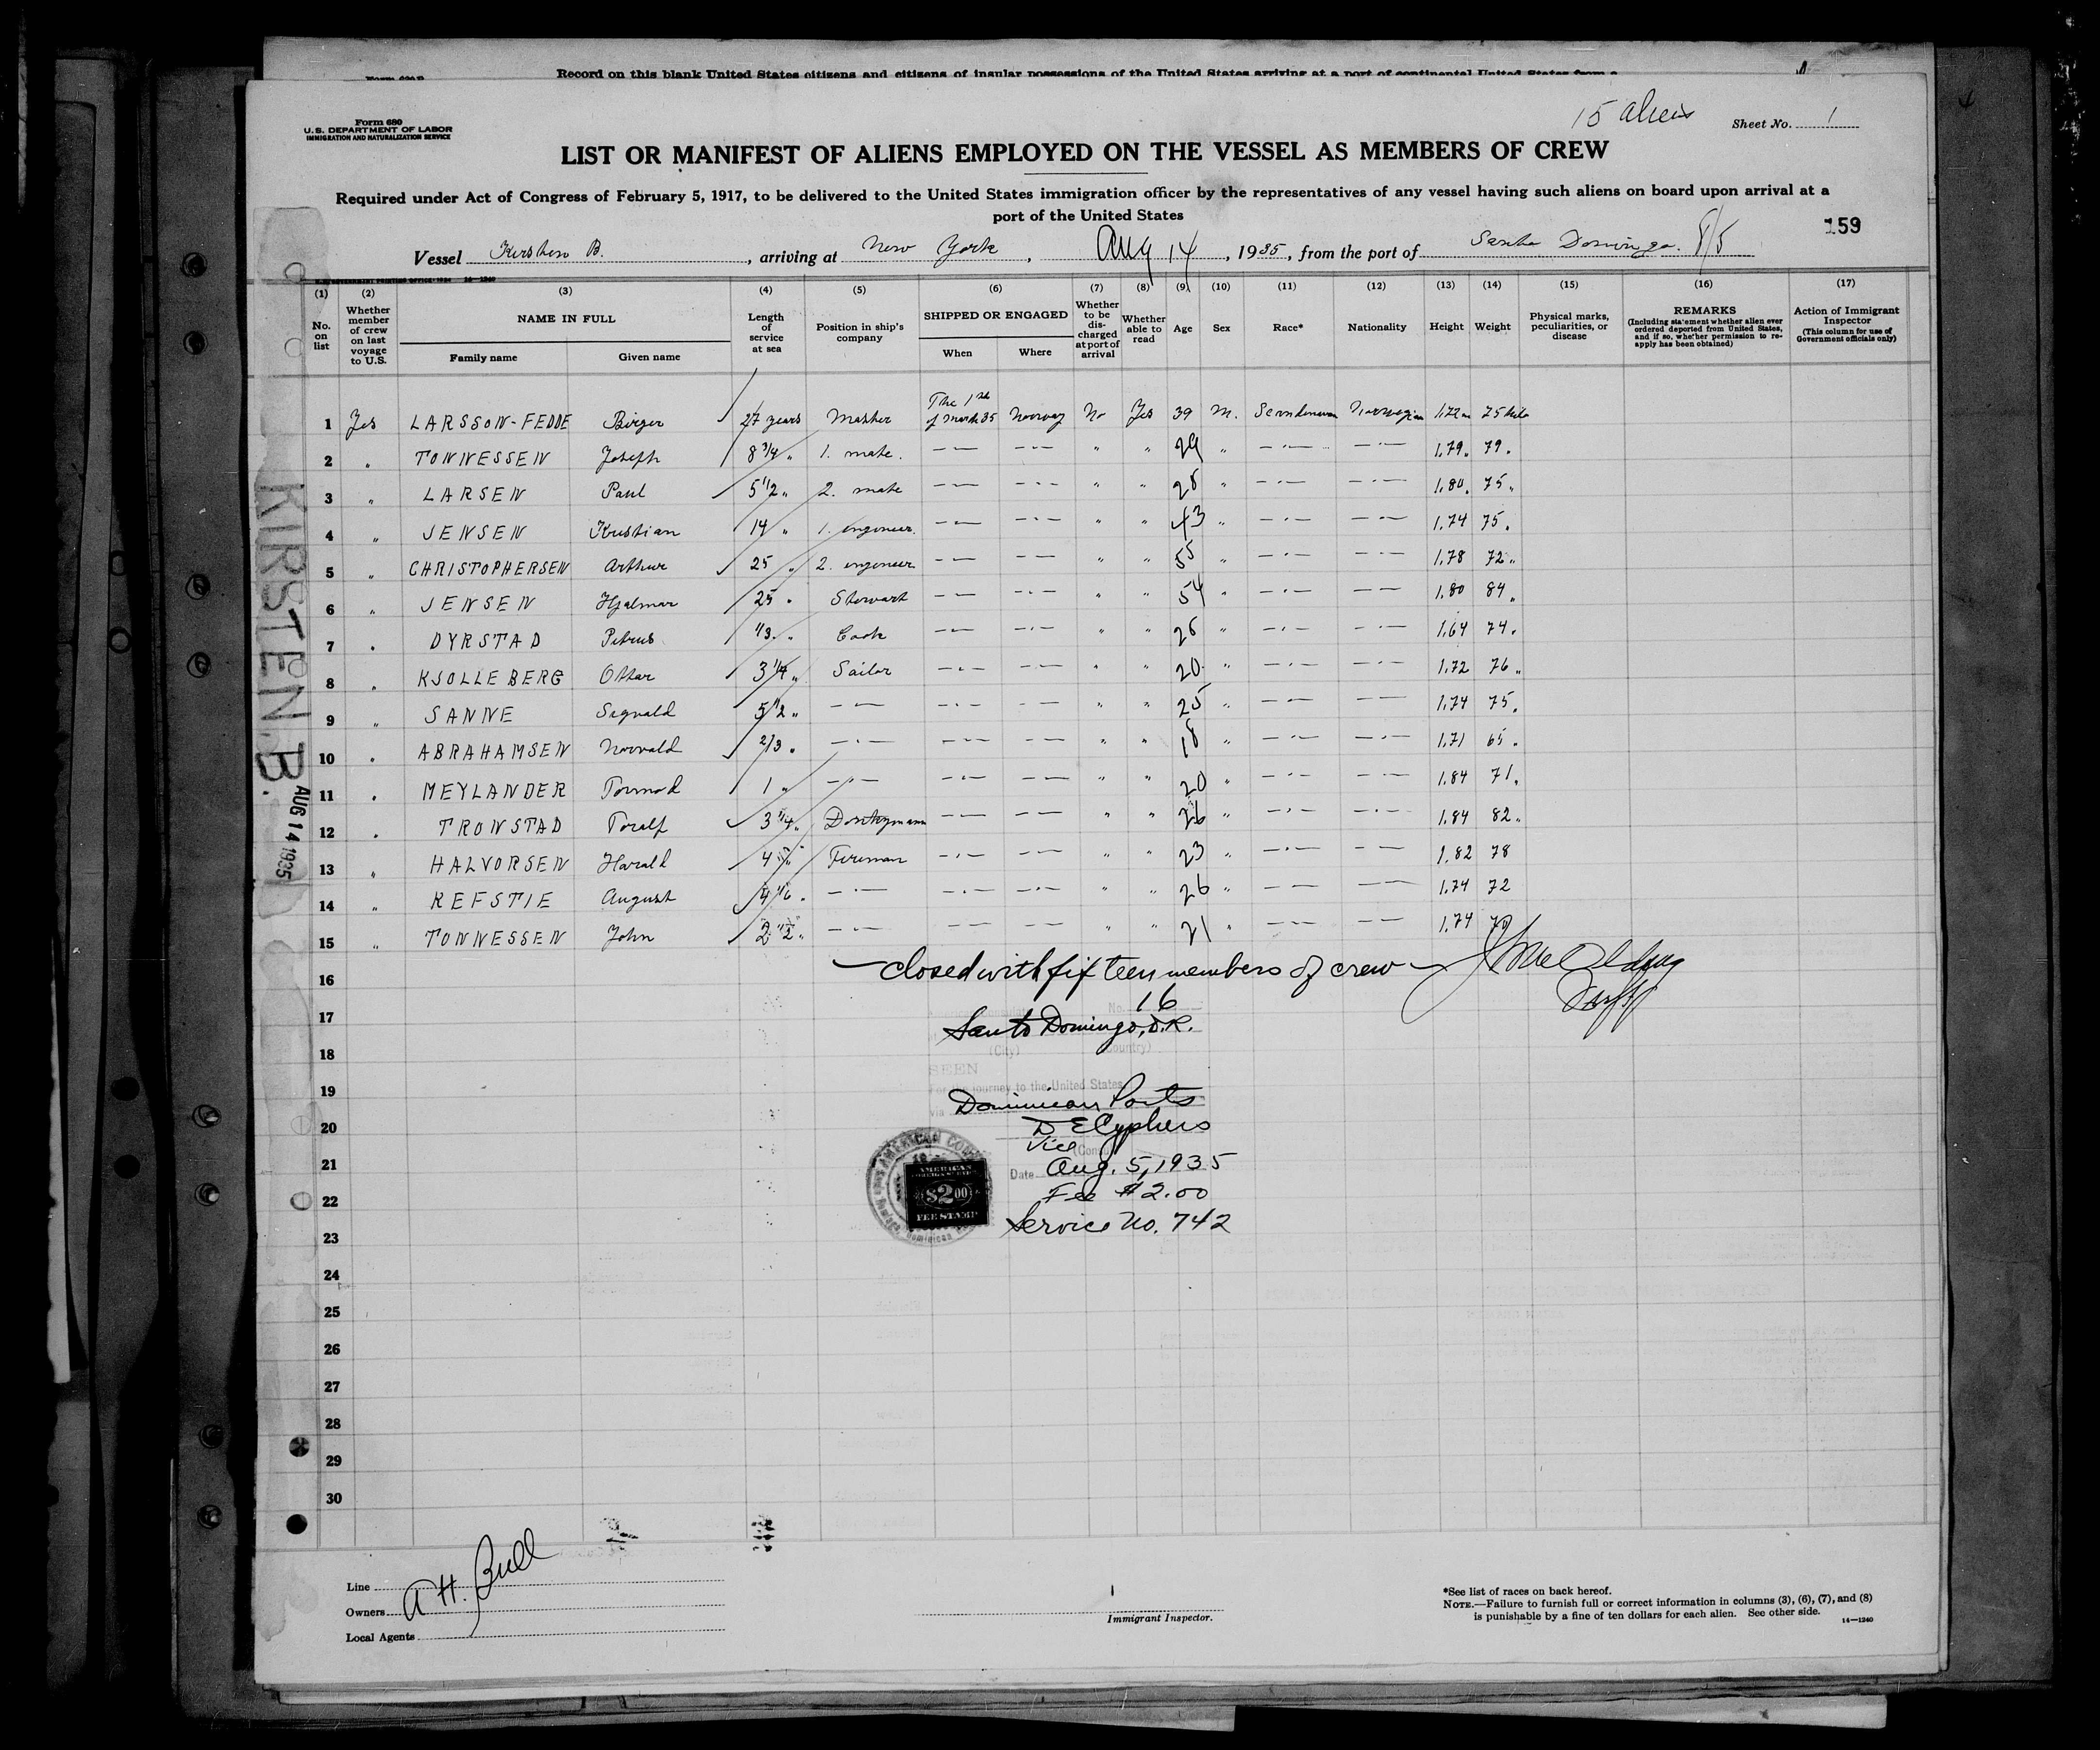 Record on this blank United States citizens and citizens of insular possessions of the United States arriving at a port of continental United States from a
Form 680
U.S. DEPARTMENT OF LABOR
IMMIGRATION AND NATURALIZATION SERVICE
15 aliens
Sheet No. 1
LIST OR MANIFEST OF ALIENS EMPLOYED ON THE VESSEL AS MEMBERS OF CREW
Required under Act of Congress of February 5, 1917, to be delivered to the United States immigration officer by the representatives of any vessel having such aliens on board upon arrival at a
port of the United States
159
Vessel Kirsten B., arriving at New York, Aug 14, 1935, from the port of Santo Domingo. 8/5
(1) No. on list
(2) Whether member of crew on last voyage to U.S.
(3) NAME IN FULL Family name Given name
(4) Length of service at sea
(5) Position in ship's company
(6) SHIPPED OR ENGAGED When Where
(7) Whether to be discharged at port of arrival
(8) Whether able to read
(9) Age
(10) Sex
(11) Race*
(12) Nationality
(13) Height
(14) Weight
(15) Physical marks, peculiarities, or disease
(16) REMARKS (Including statement whether alien ever ordered deported from United States, and if so, whether permission to re-apply has been obtained)
(17) Action of Immigrant Inspector (This column for use of Government officials only)
1 Yes LARSSON-FEDDE Birger 27 years Master The 1 st of March 35 Norway No Yes 39 M. Norwegian 1,72 m 75 kilo
2 " TONNESSEN Joseph 8 3/4 " 1. mate. — — — · — " " 29 " — · — — · — 1,79 " 79 "
3 " LARSEN Paul 5 1/2 " 2. mate — — — · — " " 28 " — · — — · — 1,80 " 75 "
4 " JENSEN Kristian 14 " 1. engeneer. — — — · — " " 43 " — · — — · — 1,74 75 "
5 " CHRISTOPHERSEN Arthur 25 " 2. engeneer — — — — " " 55 " — · — — — 1,78 72 "
6 " JENSEN Hjalmar 25 " Stewart — — — · — " " 54 " — · — — — 1,80 84 "
7 " DYRSTAD Petrus 1/3 " Cook — — — · — " " 26 " — · — — · — 1,64 74 "
8 " KJOLLEBERG Ottar 3 1/4 " Sailor — · — — · — " " 20 " — · — — · — 1,72 76 "
9 " SANNE Sigvald 5 1/2 " — — — · — — · — " " 25 " — · — — — 1,74 75 "
10 " ABRAHAMSEN Norvald 2/3 " — · — — — — — " " 18 " — · — — · — 1,71 65 "
11 " MEYLANDER Tormod 1 " — · — — · — — — " " 20 " — · — — · — 1,84 71 "
12 " TRONSTAD Toralf 3 1/4 " — — — — " " 26 " — · — — · — 1,84 82 "
13 " HALVORSEN Harald Fireman — · — — — " " 23 " — · — — — 1,82 78
14 " REFSTIE August 4 1/6 " — · — — · — — · — " " 26 " — — — — 1,74 72
15 " TONNESSEN John 2 1/2 " — · — — — — — " " 21 " — — — — 1,74 70
16
17
18
19
20
21
22
23
24
25
26
27
28
29
30
— closed with fifteen members of crew —
No. 16
Santo Domingo, D.R.
(City) (Country)
SEEN
For the journey to the United States
via Dominican Ports
D E Cyphers
Vice (Consul
Date Aug. 5, 1935
Fee $2.00
Service No. 742
AMERICAN
$2 00
FEE STAMP
KIRSTEN B.
AUG 14 1935
Line
Owners A H. Bull
Local Agents
Immigrant Inspector.
*See list of races on back hereof.
NOTE.—Failure to furnish full or correct information in columns (3), (6), (7), and (8)
is punishable by a fine of ten dollars for each alien. See other side.
14—1240